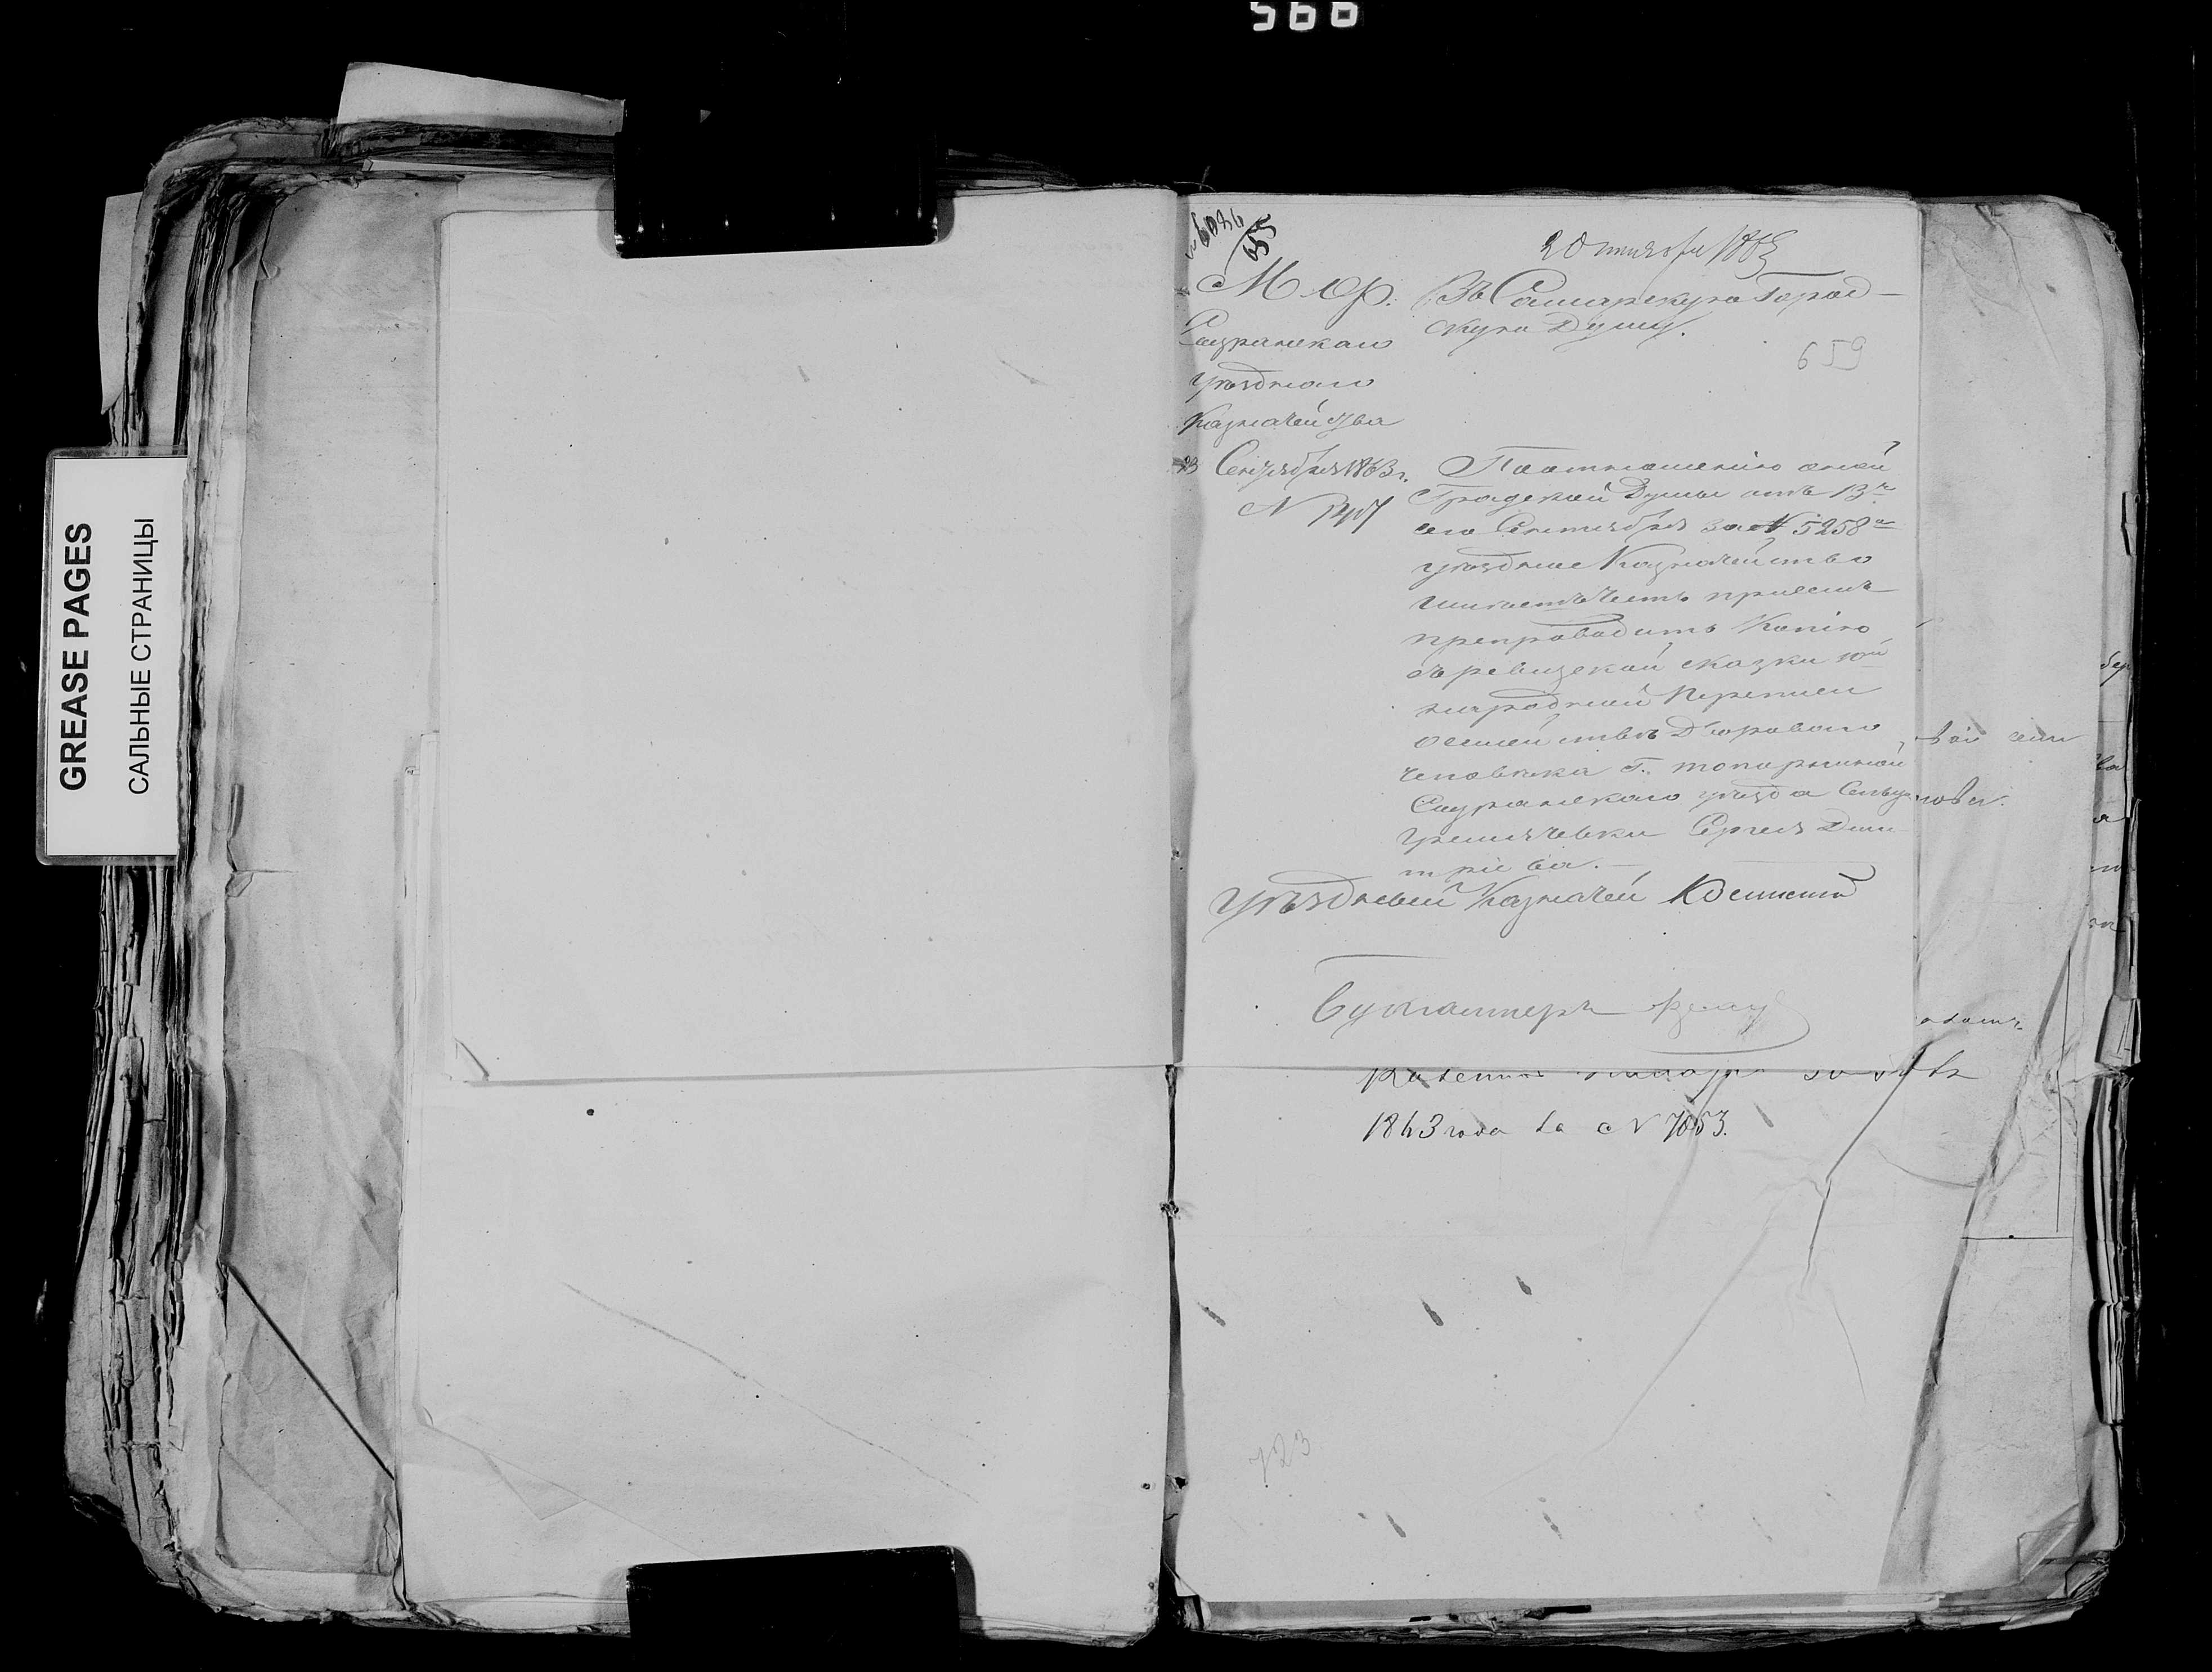 566
GREASE PAGES
САЛЬНЫЕ СТРАНИЦЫ
№ 6036
655
20 октября 1863
М. Ф.
Сызранскаго
уѣзднаго
Казначейства
23 Сентября 1863 г.
Въ Самарскую Город-
скую Думу.
659
По отношенію оной
Градской Думы отъ 13го
сего Сентября за № 5258м
уѣздное Казначейство
имѣетъ честь при семъ
препроводить Копію
съ ревизской сказки 10ой
народной Переписи
о семействѣ Дворового
человѣка Г.
Сызранскаго уѣзда Сельца
Сергея Дми-
тріева.
Уѣздный Казначей
Бухгалтеръ
1863 года за № 7053.
723